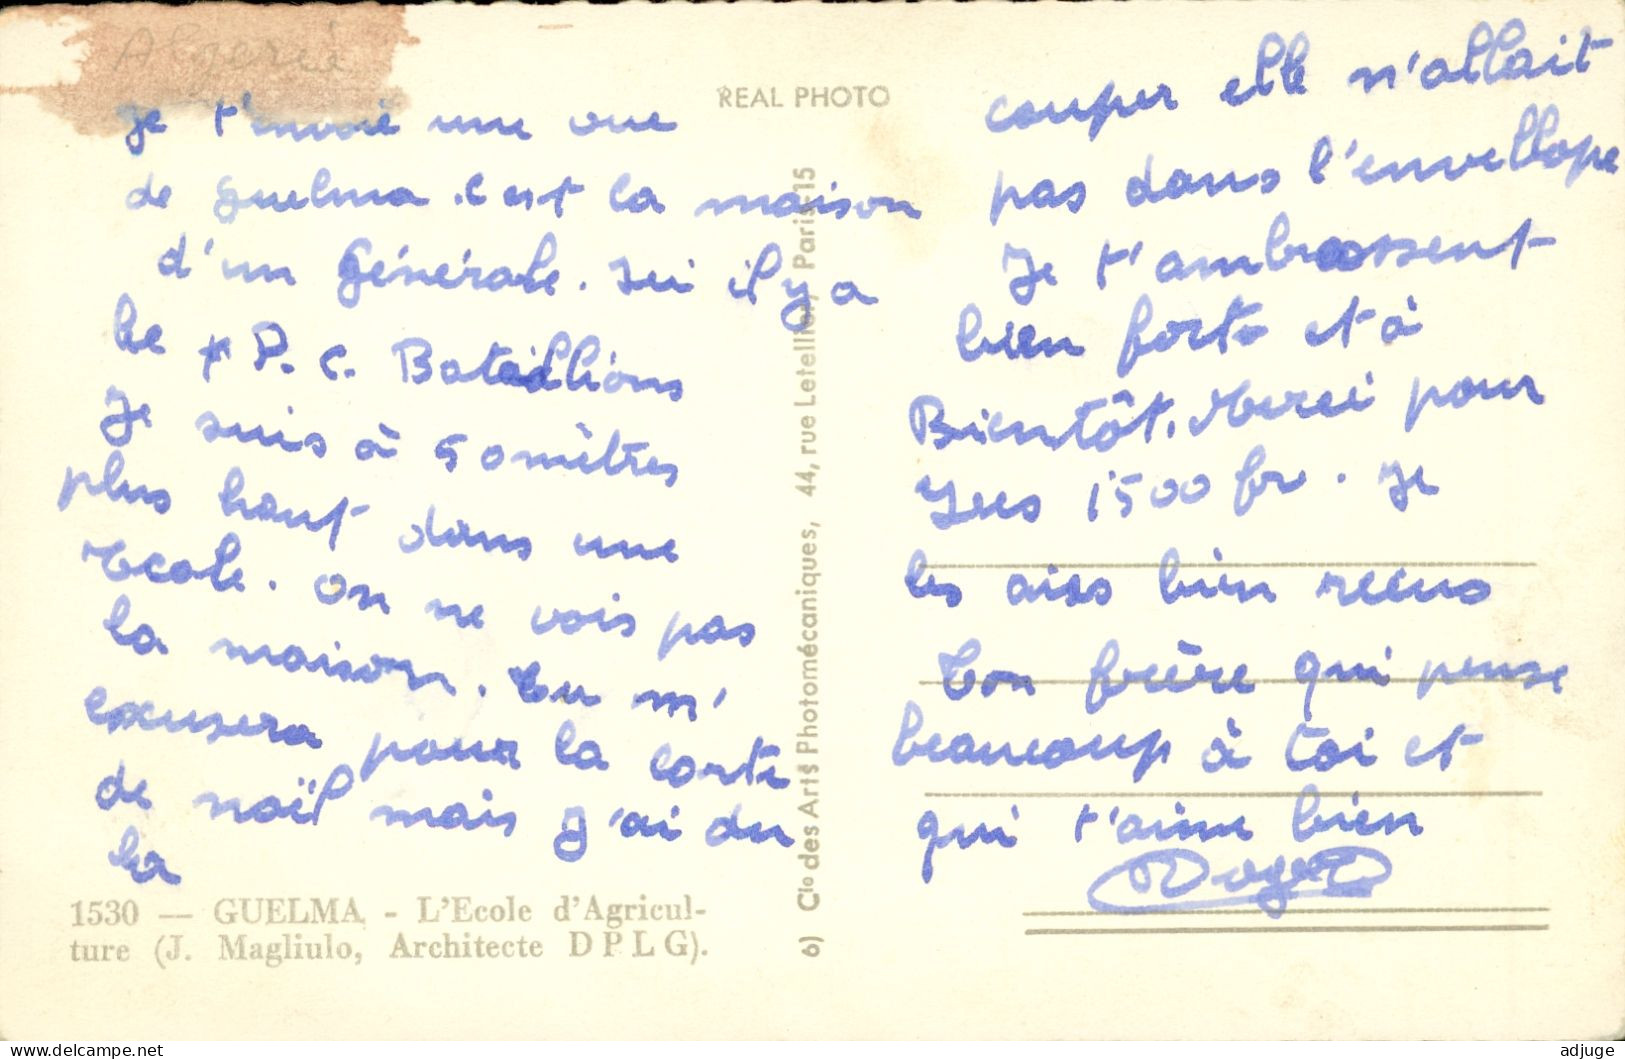 Algerie
Je t'envoie une vue
de Guelma. c est la maison
d'un Générale. Ici il y a
le P. C. Bataillions
Je suis à 50 mètres
plus haut dans une
Ecole. On ne vois pas
la maison. Tu m'
excusera pour la carte
de noël mais j'ai du
la
1530 — GUELMA - L'Ecole d'Agricul-
ture (J. Magliulo, Architecte D P L G).
REAL PHOTO
6) Cie des Arts Photomécaniques, 44, rue Letellier, Paris-15
couper elle n'allait
pas dans l'envellope
Je t'ambrassent
bien forts et à
Bientôt. Merci pour
1500 fr. Je
les ais bien recus
Ton frère qui pense
beaucoup à toi et
qui t'aime bien
Roger
delcampe.net
adjuge